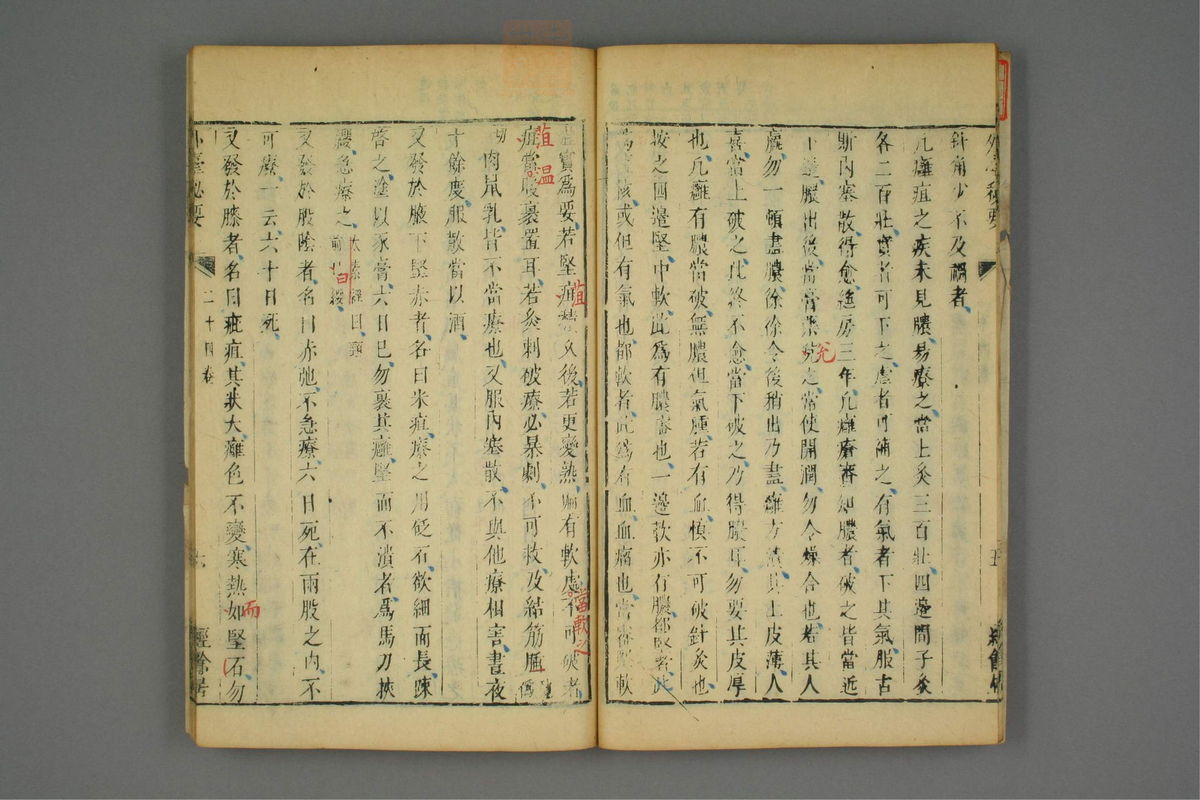 針角少不及禍者
凡癰疽之疾未見膿易療之當上灸三百壯四邊間子灸
各二百壯實者可下之虛者可補之有氣者下其氣服占
斯內塞散得愈絕房三年凡癰疽審知膿者破之皆當近
下邊膿出後當膏藥兌之常使開潤勿令燥合也若其人
羸勿一頓盡膿徐徐令後稍出乃盡癰方潰其上皮薄人
喜當上破之此終不愈當下破之乃得膿耳勿要其皮厚
也凡癰有膿當破無膿但氣腫若有血慎不可破針灸也
按之四邊堅中軟此為有膿審也一邊軟亦有膿都堅者此
為 核或但有氣也都軟者此為有血血瘤也當審 軟
虛實為要若堅疽 久後若更變熱 有軟處不可破者
疽當暖裹置耳若灸刺破療必暴劇不可救及結筋
肉鼠乳皆不當療也又服內塞散不與他療相害晝夜
十餘度服散當以酒
又發於腋下堅赤者名曰米疽療之用砭石欲細而長疎
啓之塗以豕膏六日已勿裹其癰堅而不潰者為馬刀挾
纓急療之 太素經曰頸
前曰纓
又發於股陰者名曰赤弛不急療六日死在兩股之內不
可療一云六十日死
又發於膝者名曰疵疽其狀大癰色不變寒熱如堅石勿
外臺祕要
二十四卷
六
經餘居
外臺祕要
五
疽
溫
疽
當軟之
兌
曰
而